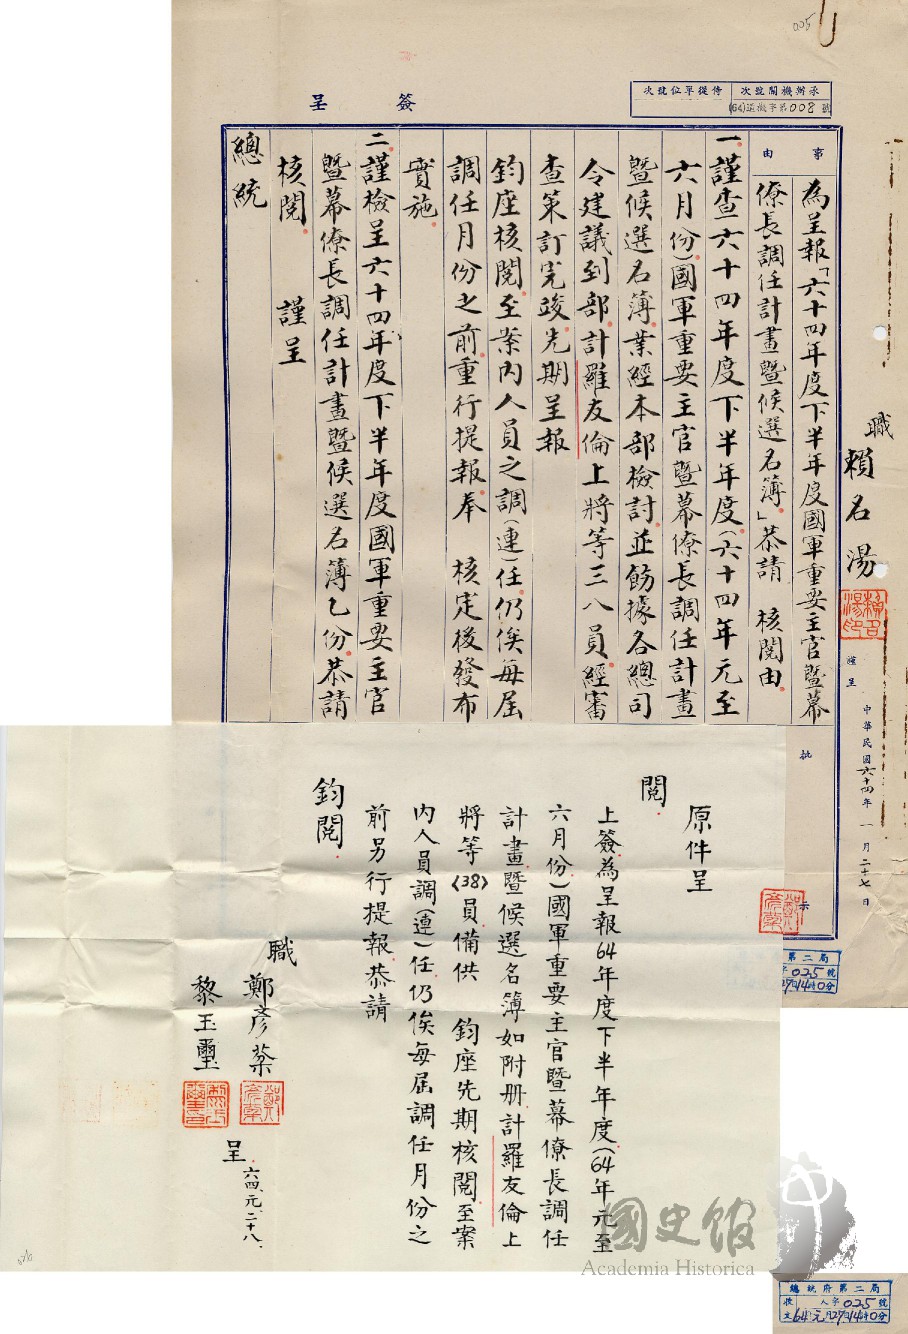 005
簽呈
承辦機關號次
侍從單位號次
(64)道徹字第008號
事由
為呈報「六十四年度下半年度國軍重要主官暨幕
僚長調任計畫暨候選名簿」恭請 核閱由
一、謹查六十四年度下半年度（六十四年元至
六月份）國軍重要主官暨幕僚長調任計畫
暨候選名簿，業經本部檢討，並飭據各總司
令建議到部，計羅友倫上將等三八員，經審
查策訂完竣，先期呈報
鈞座核閱。至案內人員之調（連）任，仍俟每屆
調任月份之前，重行提報，奉 核定後發布
實施。
二、謹檢呈六十四年度下半年度國軍重要主官
暨幕僚長調任計畫暨候選名簿乙份，恭請
核閱。 謹呈
總統
職 賴名湯
謹呈
中華民國六十四年一月二十七日
批示
原件呈
閱。
上簽為呈報64年度下半年度（64年元至
六月份）國軍重要主官暨幕僚長調任
計畫暨候選名簿如附冊，計羅友倫上
將等(38)員，備供 鈞座先期核閱，至案
內人員調（連）任，仍俟每屆調任月份之
前另行提報，恭請
鈞閱。
職 鄭彥棻
黎玉璽
呈。
六四、元、二十八、
第二局
025號
國史館
Academia Historica
總統府第二局
收文
人字025號
64元月27日14時0分